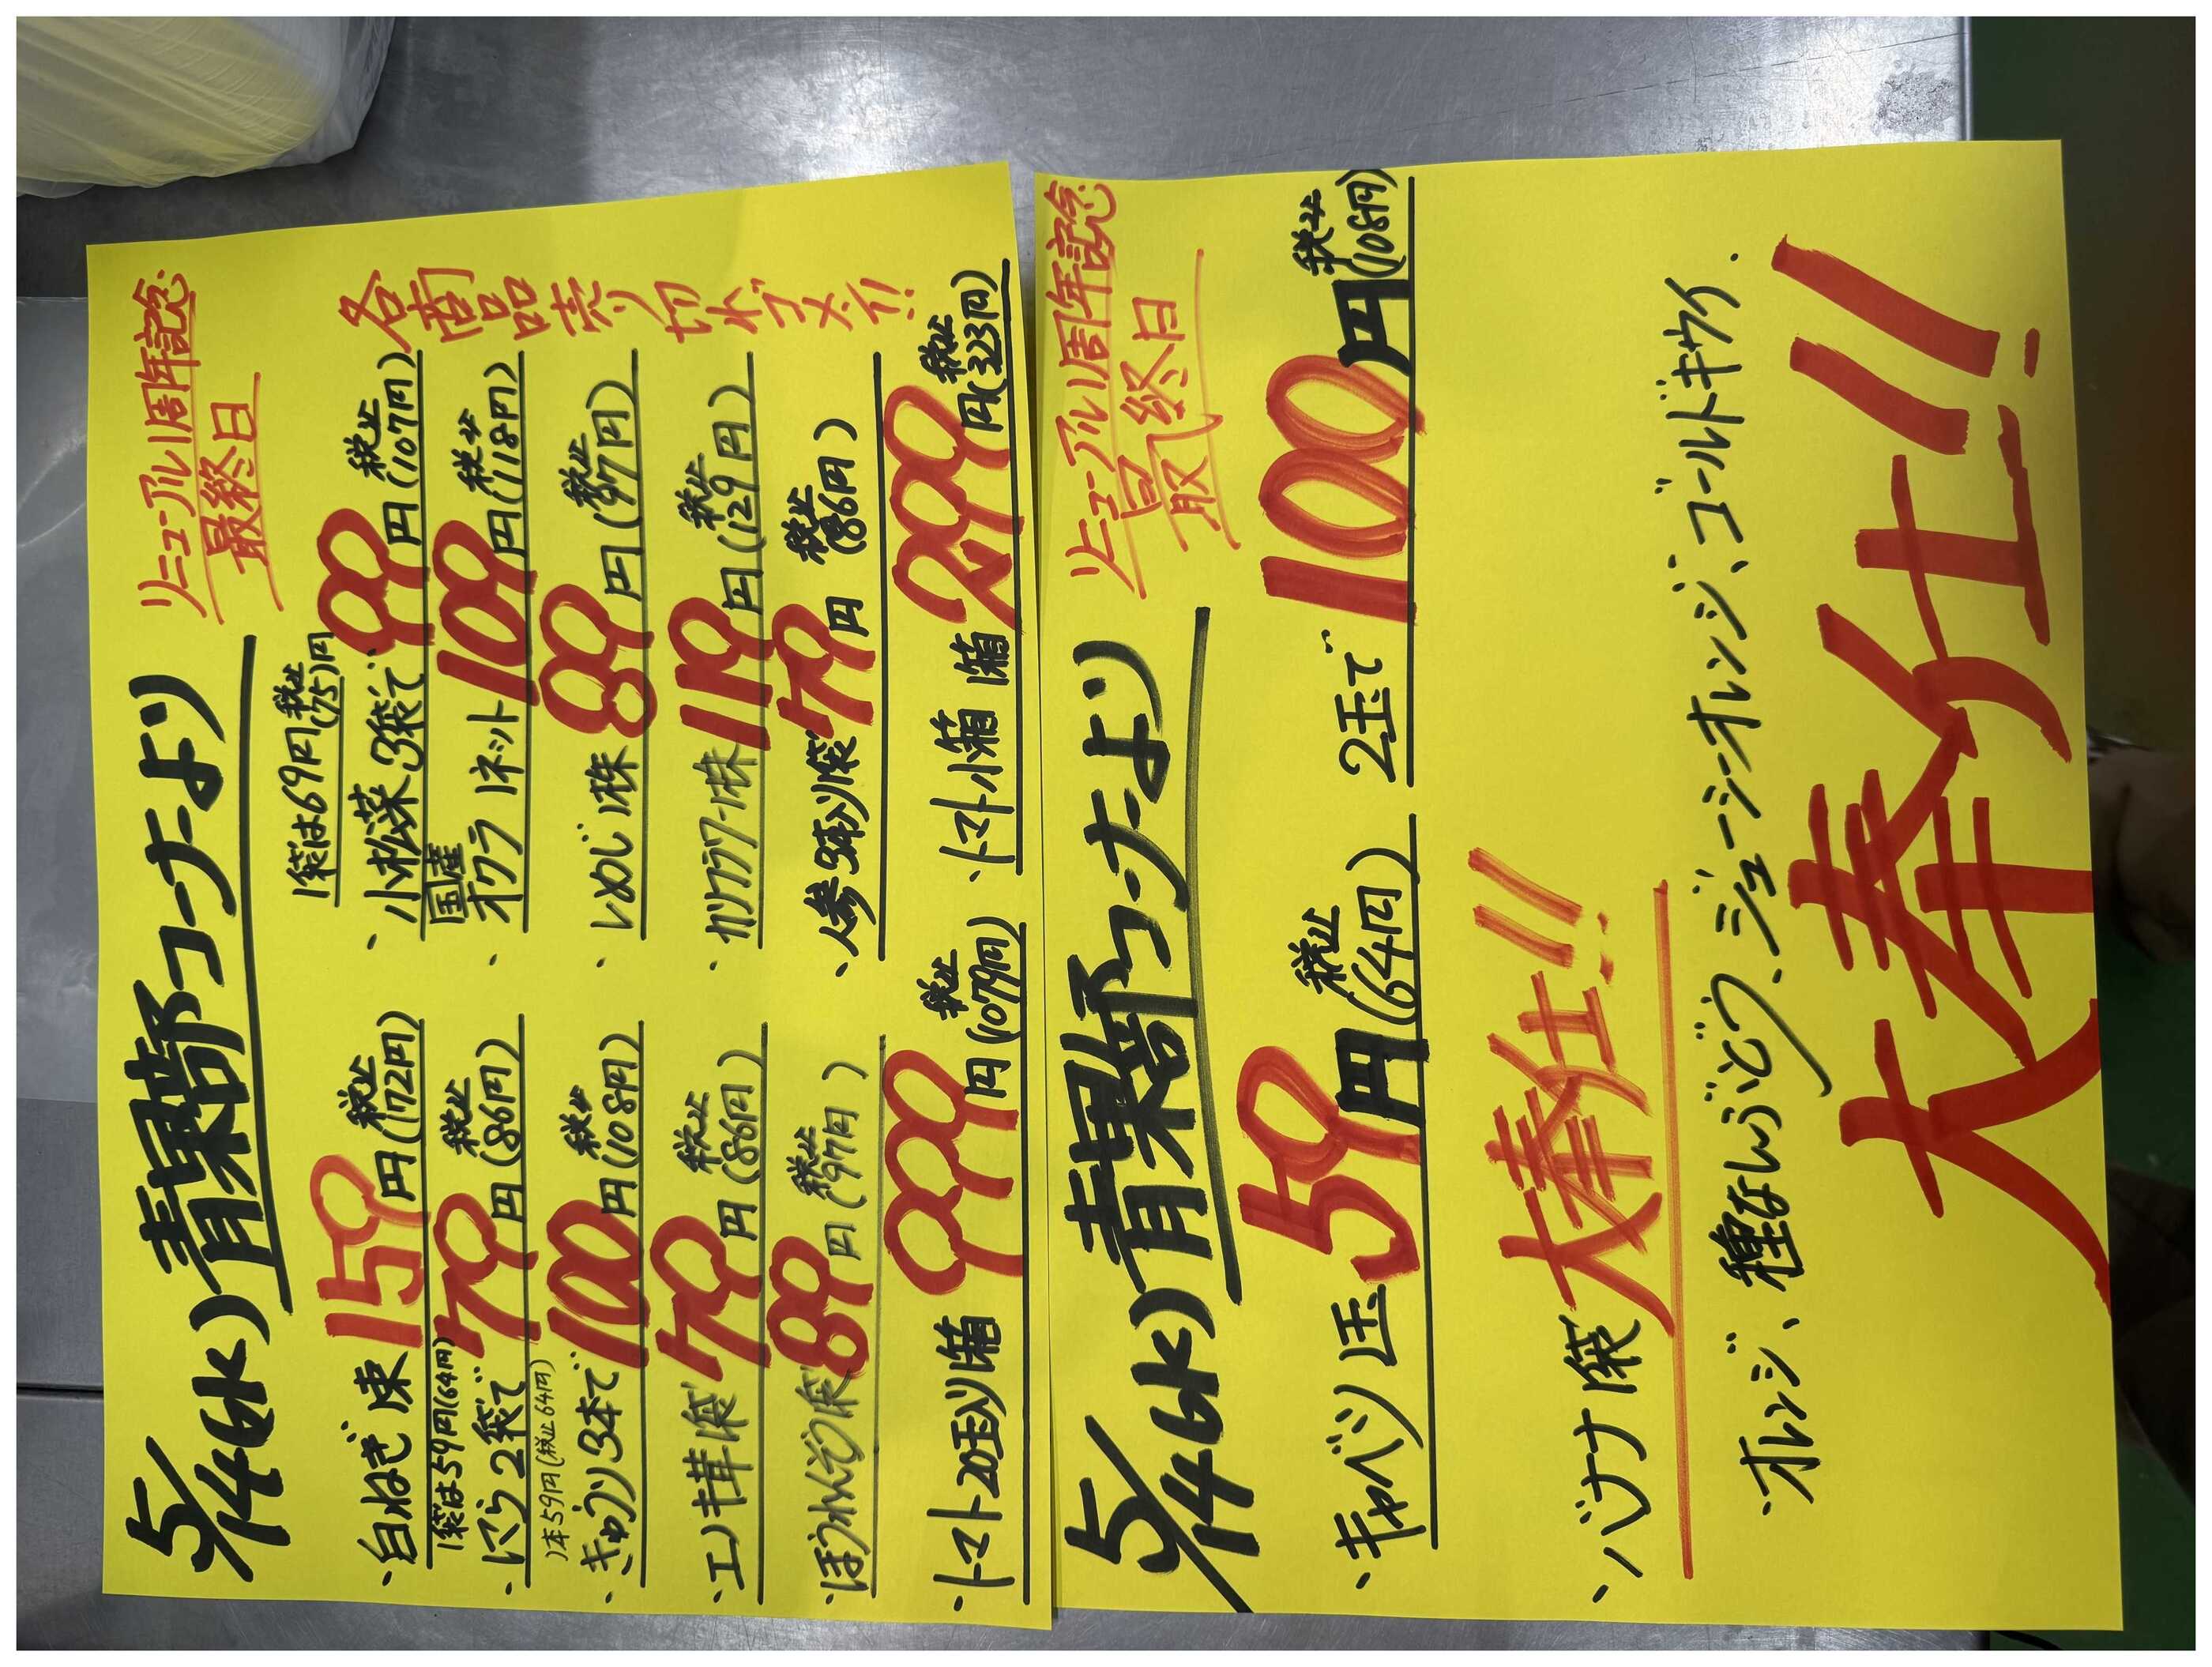 5/14(水)青果部コーナーより
リニューアル1周年記念
最終日
・白ねぎ1束 159円(172円)税込
1袋は69円(75)円税込
・小松菜3袋で 99円(107円)税込
1袋は59円(64円)
・にら2袋で 79円(86円)税込
・国産オクラ1ネット 109円(118円)税込
1本59円(税込64円)
・きゅうり3本で 100円(108円)税込
・しめじ1株 89円(97円)税込
・エノキ茸1袋 79円(86円)税込
・カリフラワー1株 119円(129円)税込
・ほうれんそう1袋 89円(97円)税込
・人参3本入り1袋 79円(86円)税込
・トマト20玉入り1箱 999円(1079円)税込
・トマト小箱1箱 299円(323円)税込
各商品売り切れゴメン!
5/14(水)青果部コーナーより
リニューアル1周年記念
最終日
・キャベツ1玉 59円(64円)税込
2玉で 100円(108円)税込
・バナナ1袋 大奉仕!!
・オレンジ、種なしぶどう、ジューシーオレンジ、ゴールドキウイ、
大奉仕!!